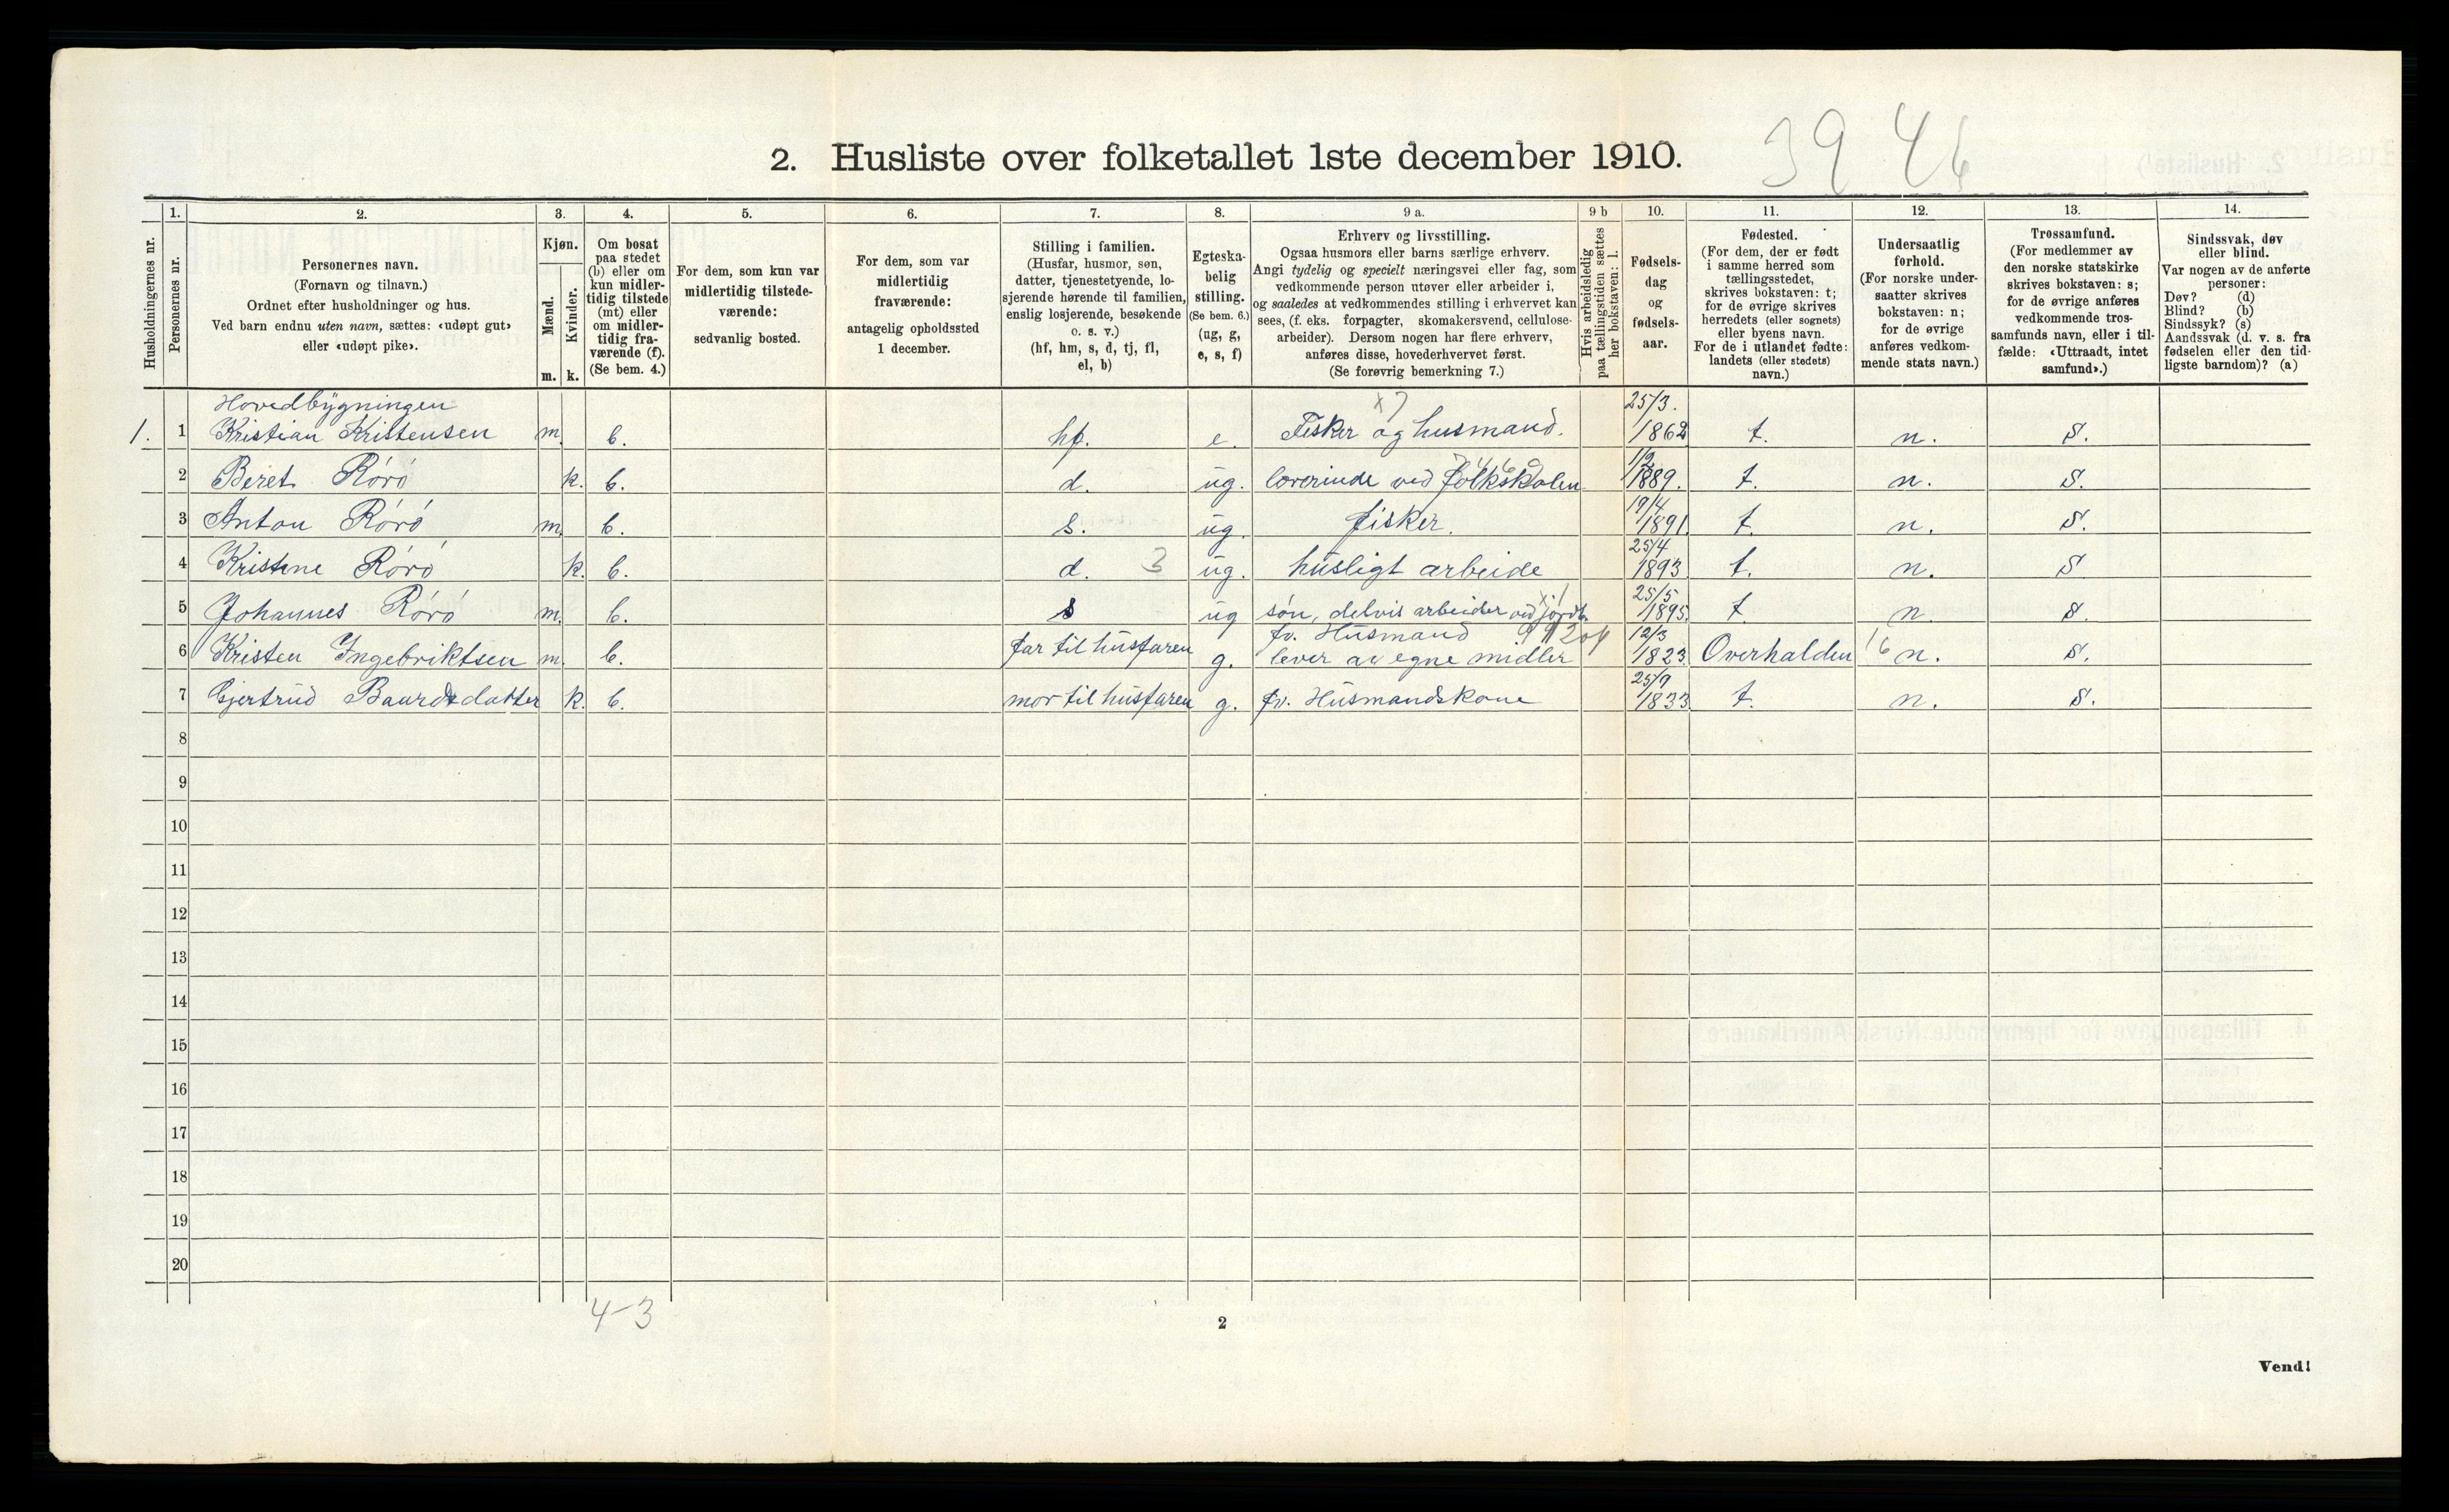 2. Husliste over folketallet 1ste december 1910.
39 46
Husholdningernes nr.
1.
Personernes nr.
2.
Personernes navn.
(Fornavn og tilnavn.)
Ordnet efter husholdninger og hus.
Ved barn endnu uten navn, sættes: «udøpt gut»
eller «udøpt pike».
3.
Kjøn.
Mænd.
Kvinder.
m. k.
4.
Om bosat
paa stedet
(b) eller om
kun midler-
tidig tilstede
(mt) eller
om midler-
tidig fra-
værende (f).
(Se bem. 4.)
5.
For dem, som kun var
midlertidig tilstede-
værende:
sedvanlig bosted.
6.
For dem, som var
midlertidig
fraværende:
antagelig opholdssted
1 december.
7.
Stilling i familien.
(Husfar, husmor, søn,
datter, tjenestetyende, lo-
sjerende hørende til familien,
enslig losjerende, besøkende
o. s. v.)
(hf, hm, s, d, tj, fl,
el, b)
8.
Egteska-
belig
stilling.
(Se bem. 6.)
(ug, g,
e, s, f)
9 a.
Erhverv og livsstilling.
Ogsaa husmors eller barns særlige erhverv.
Angi tydelig og specielt næringsvei eller fag, som
vedkommende person utøver eller arbeider i,
og saaledes at vedkommendes stilling i erhvervet kan
sees, (f. eks. forpagter, skomakersvend, cellulose-
arbeider). Dersom nogen har flere erhverv,
anføres disse, hovederhvervet først.
(Se forøvrig bemerkning 7.)
9 b
Hvis arbeidsledig
paa tællingstiden sættes
her bokstaven: l.
10.
Fødsels-
dag
og
fødsels-
aar.
11.
Fødested.
(For dem, der er født
i samme herred som
tællingsstedet,
skrives bokstaven: t;
for de øvrige skrives
herredets (eller sognets)
eller byens navn.
For de i utlandet fødte:
landets (eller stedets)
navn.)
12.
Undersaatlig
forhold.
(For norske under-
saatter skrives
bokstaven: n;
for de øvrige
anføres vedkom-
mende stats navn.)
13.
Trossamfund.
(For medlemmer av
den norske statskirke
skrives bokstaven: s;
for de øvrige anføres
vedkommende tros-
samfunds navn, eller i til-
fælde: «Uttraadt, intet
samfund».)
14.
Sindssvak, døv
eller blind.
Var nogen av de anførte
personer:
Døv? (d)
Blind? (b)
Sindssyk? (s)
Aandssvak (d. v. s. fra
fødselen eller den tid-
ligste barndom)? (a)
Hovedbygningen x7 25/3.
1. 1 Kristian Kristensen m. b. hf. e. Fisker og husmand. 1862 t. n. S.
2 Beret Róró k. b. d. ug. lærerinde ved folkskolen 1/2 1889. t. n. S.
3 Anton Róró m. b. s. ug. fisker. 19/4 1891. t. n. S.
4 Kristine Róró k. b. d. 3 ug. husligt arbeide 25/4 1893. t. n. S
5 Johannes Róró m. b. s ug søn, delvis arbeider ved jordb. 25/5 1895. t. n. S.
6 Kristen Ingebriktsen m. b. far til husfaren g. fv. Husmand lever av egne midler 12/3 1823. Overhalden 16 n. S.
7 Gjertrud Baardsdatter k. b. mor til husfaren g. fv. Husmandskone 25/9 1833. t. n. S.
8
9
10
11
12
13
14
15
16
17
18
19
20
4-3
2
Vend!